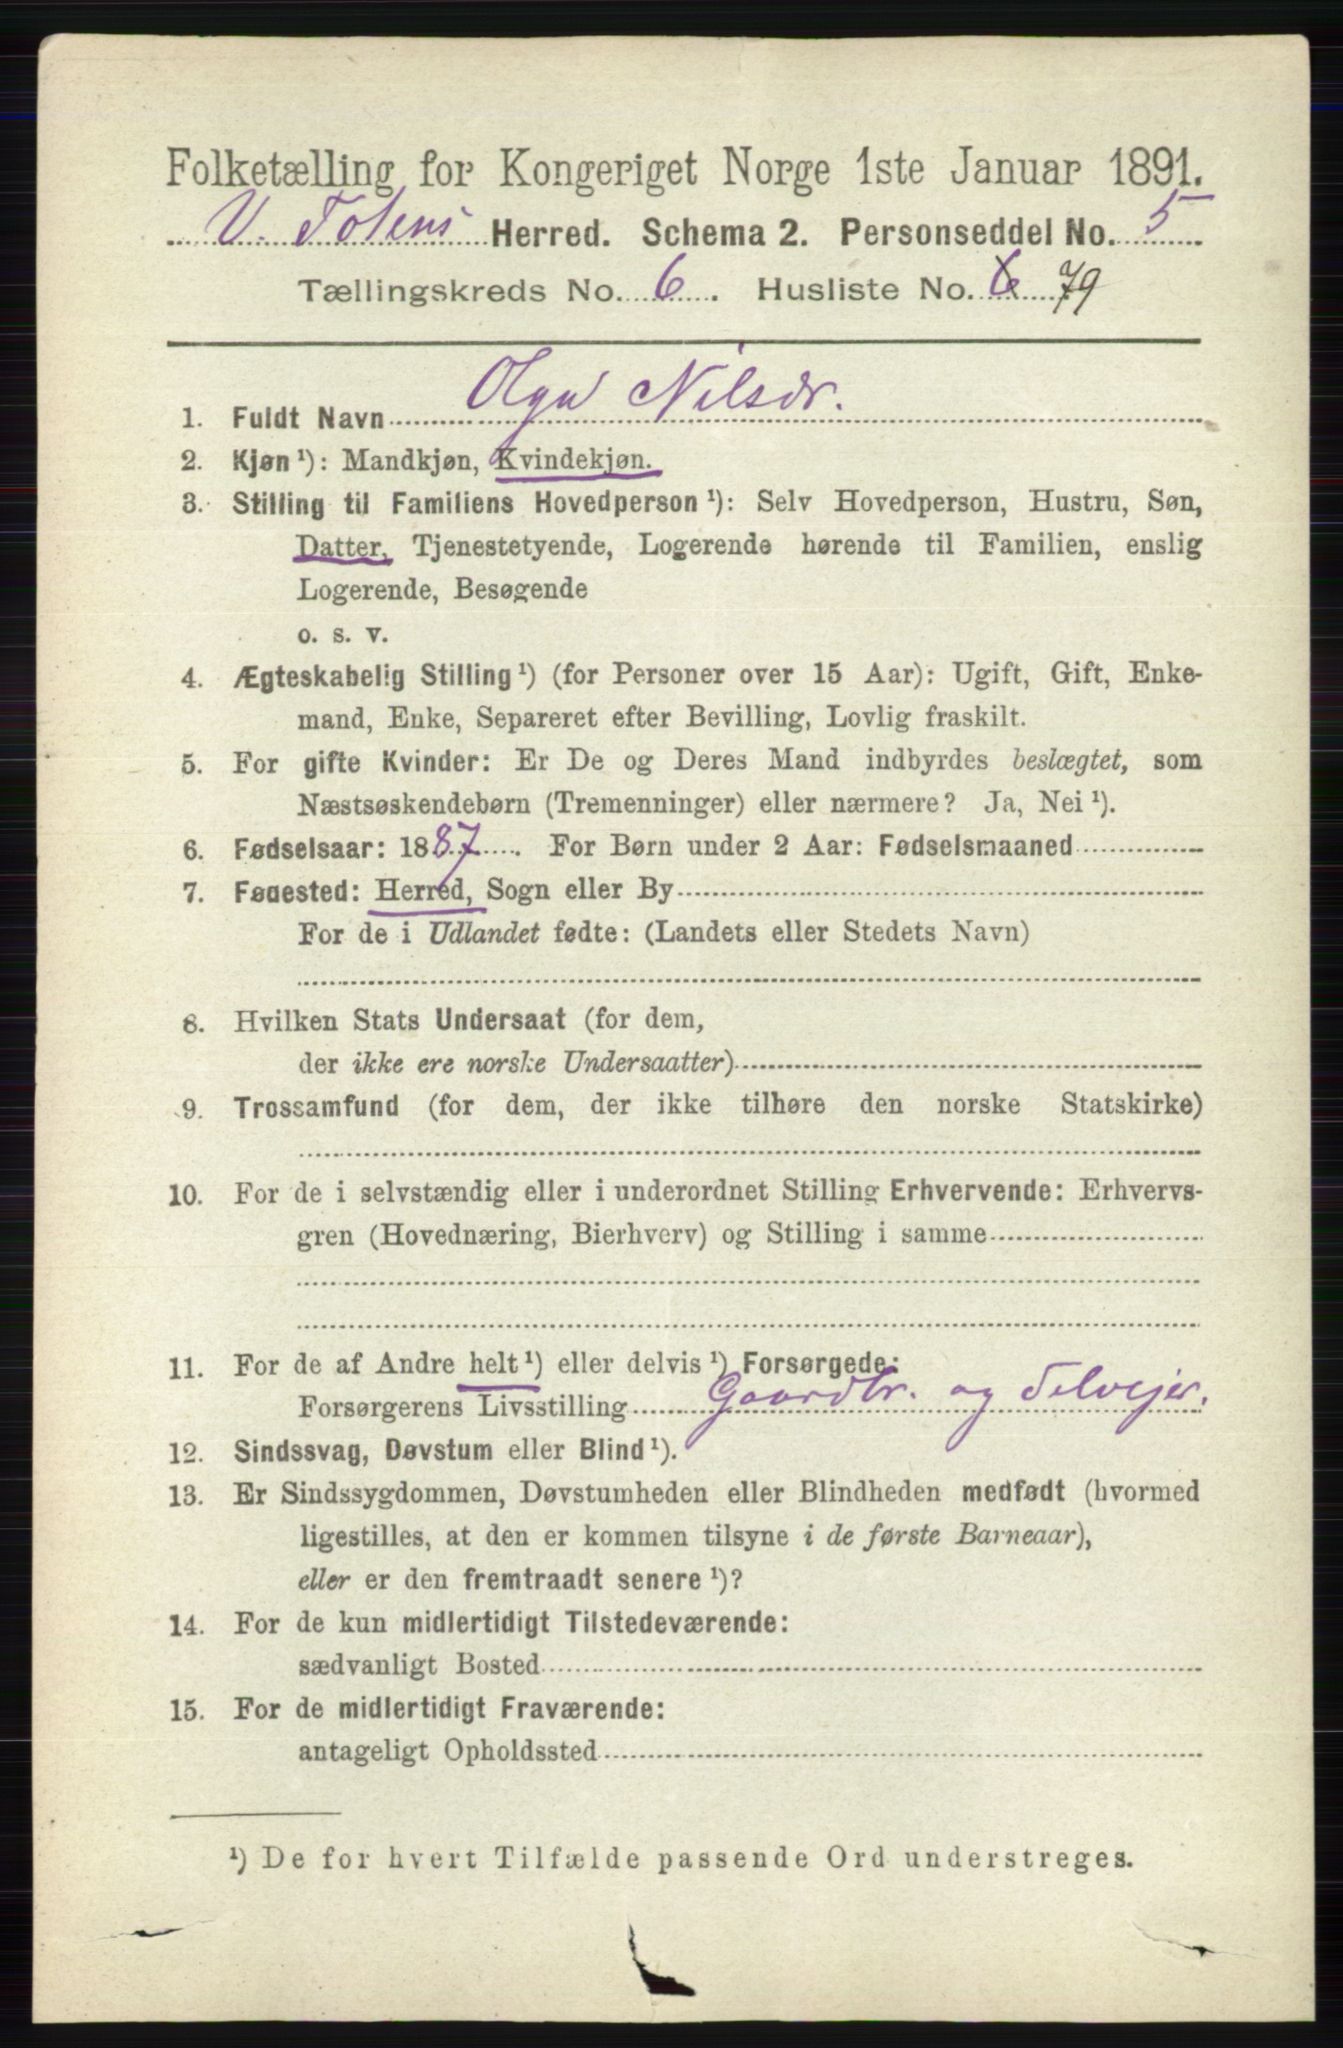 Folketælling for Kongeriget Norge 1ste Januar 1891.
V. Totens Herred. Schema 2. Personseddel No. 5
Tællingskreds No. 6. Husliste No. 6 79
1. Fuldt Navn Olga Nilsdr.
2. Kjøn¹): Mandkjøn, Kvindekjøn.
3. Stilling til Familiens Hovedperson¹): Selv Hovedperson, Hustru, Søn,
Datter, Tjenestetyende, Logerende hørende til Familien, enslig
Logerende, Besøgende
o. s. v.
4. Ægteskabelig Stilling¹) (for Personer over 15 Aar): Ugift, Gift, Enke-
mand, Enke, Separeret efter Bevilling, Lovlig fraskilt.
5. For gifte Kvinder: Er De og Deres Mand indbyrdes beslægtet, som
Næstsøskendebørn (Tremenninger) eller nærmere? Ja, Nei¹).
6. Fødselsaar: 1887. For Børn under 2 Aar: Fødselsmaaned
7. Fødested: Herred, Sogn eller By
For de i Udlandet fødte: (Landets eller Stedets Navn)
8. Hvilken Stats Undersaat (for dem,
der ikke ere norske Undersaatter)
9. Trossamfund (for dem, der ikke tilhøre den norske Statskirke)
10. For de i selvstændig eller i underordnet Stilling Erhvervende: Erhvervs-
gren (Hovednæring, Bierhverv) og Stilling i samme
11. For de af Andre helt¹) eller delvis¹) Forsørgede:
Forsørgerens Livsstilling Gaardbr. og Selvejer.
12. Sindssvag, Døvstum eller Blind¹).
13. Er Sindssygdommen, Døvstumheden eller Blindheden medfødt (hvormed
ligestilles, at den er kommen tilsyne i de første Barneaar),
eller er den fremtraadt senere¹)?
14. For de kun midlertidigt Tilstedeværende:
sædvanligt Bosted
15. For de midlertidigt Fraværende:
antageligt Opholdssted
¹) De for hvert Tilfælde passende Ord understreges.